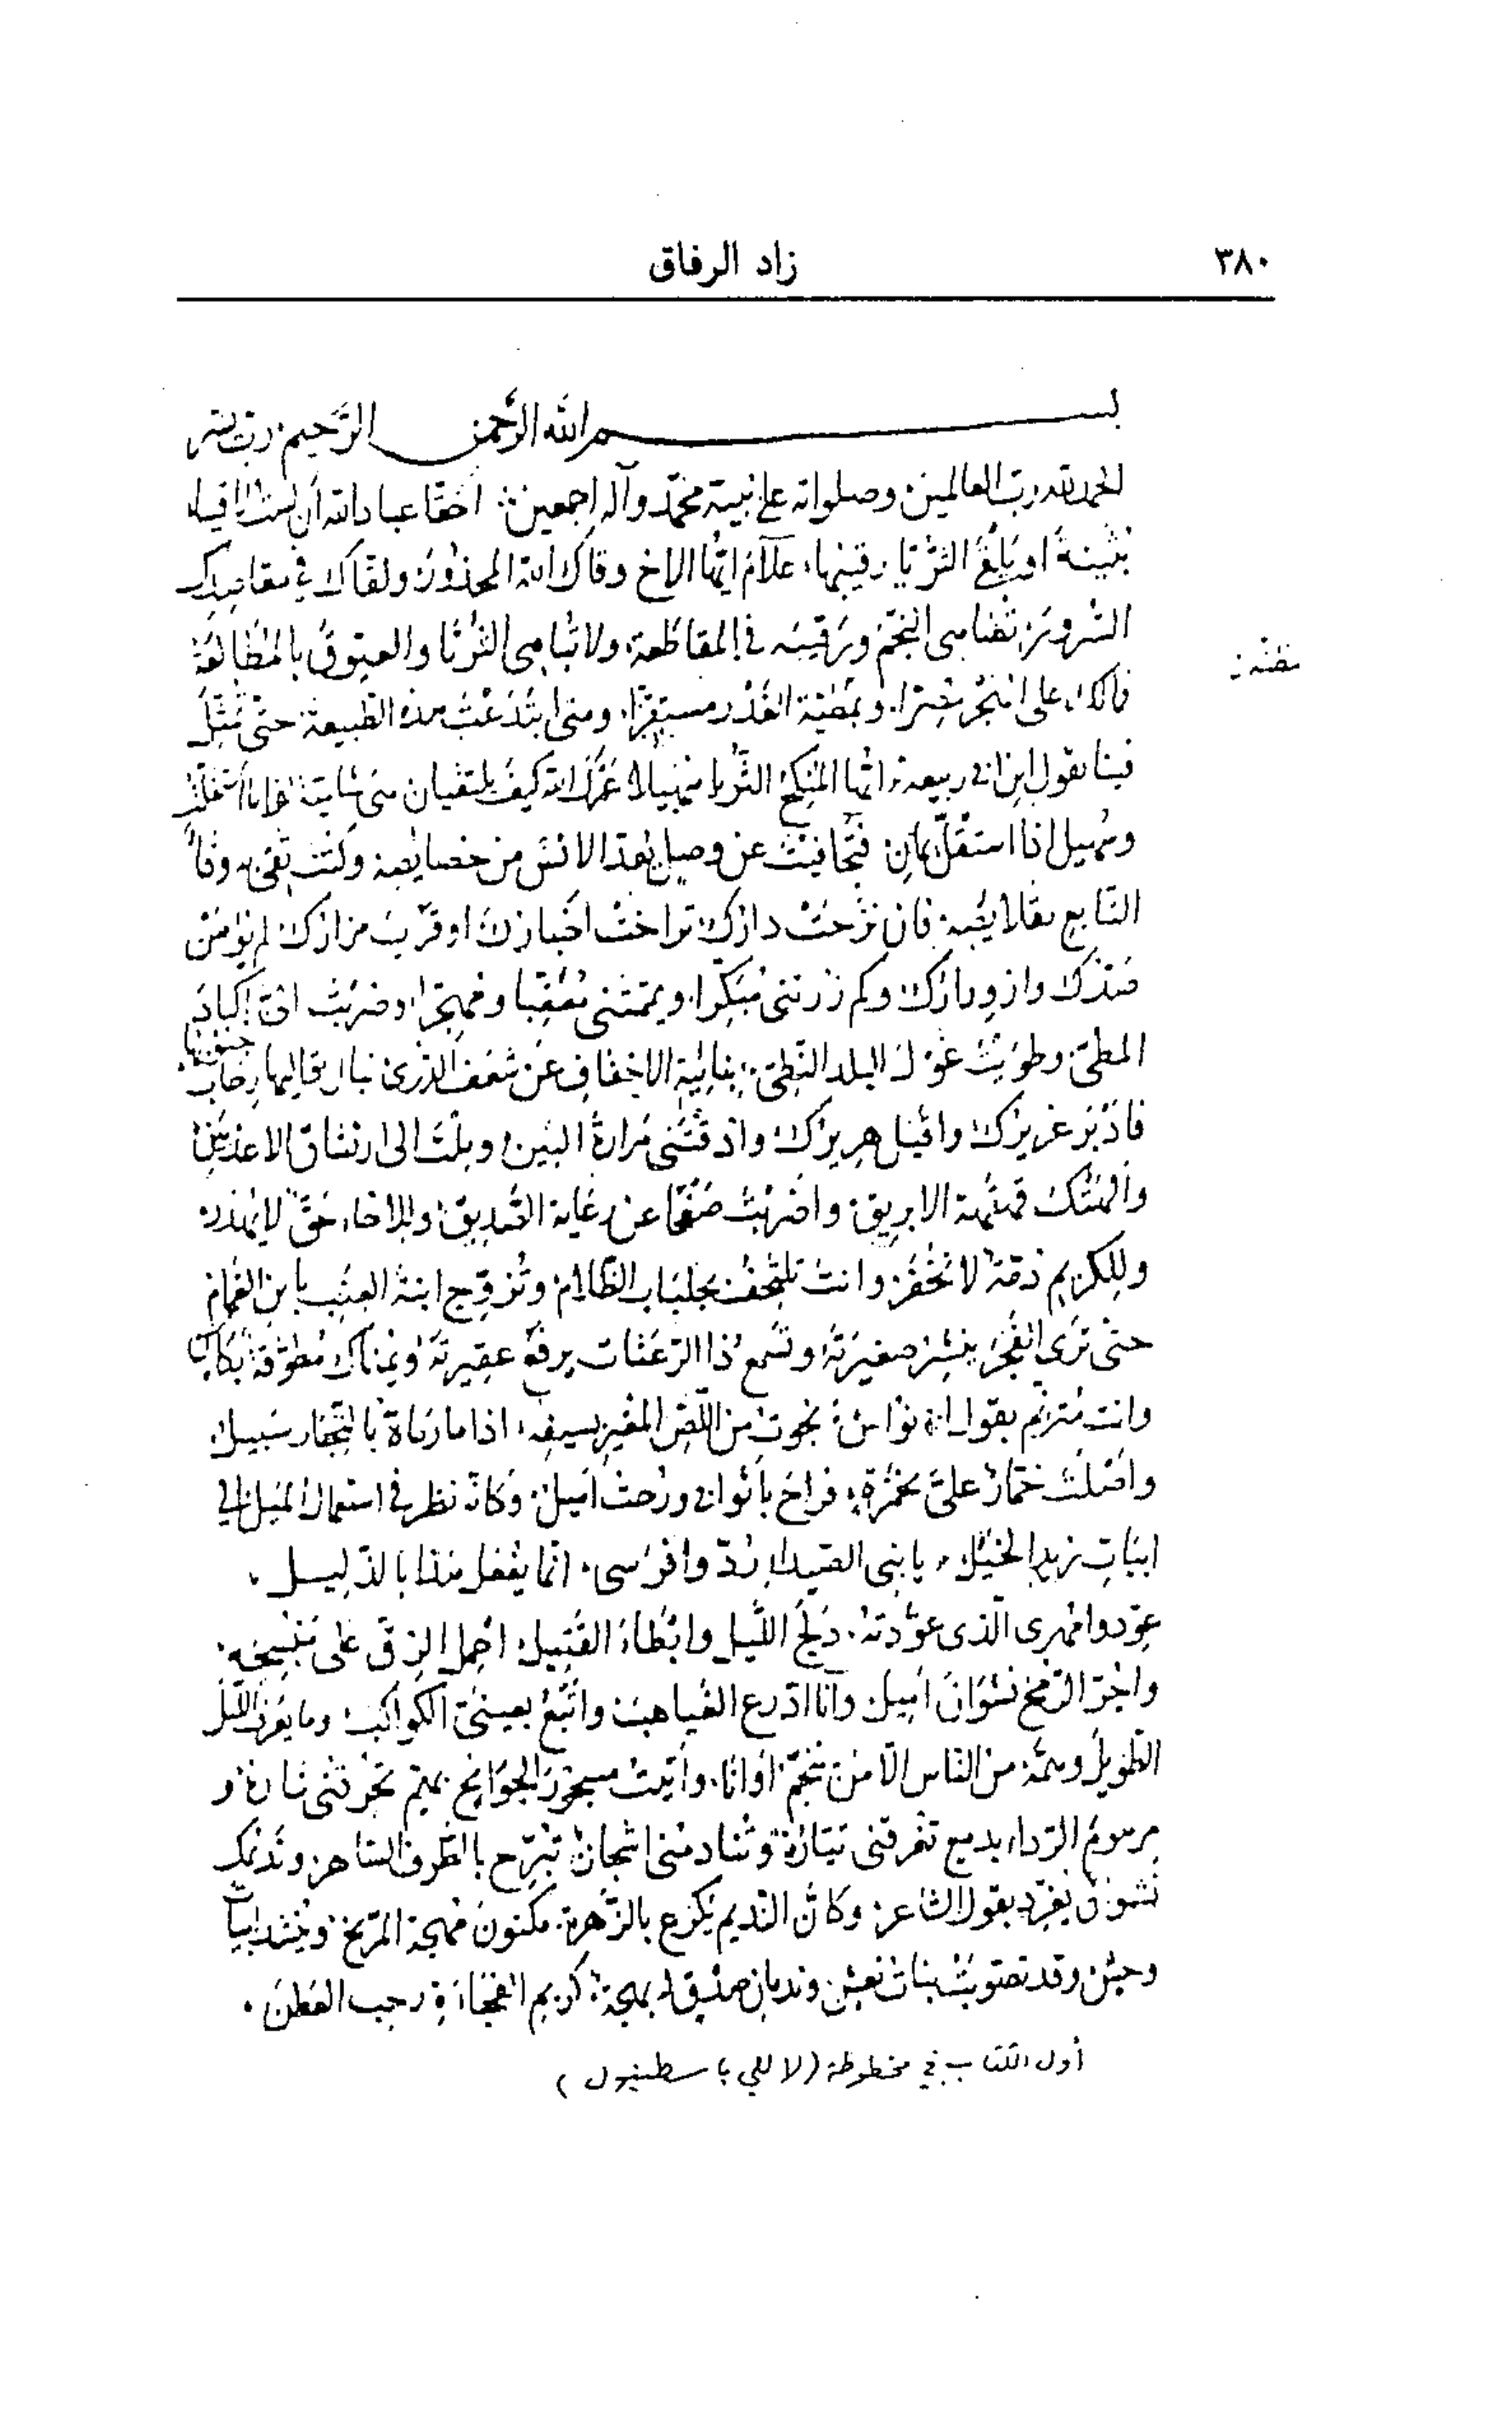 ٣٨٠
زاد الرفاق
بسم الله الرحمن الرحيم رب يسر
الحمد لله رب العالمين وصلواته على نبيه محمد وآله اجمعين أحقا عباد الله أن لست لاقيا
بثينة او يلقى الثريا رقيبها علام ايها الاخ وقاك الله المحذور ولقاك في مقاصدك
السرور تضاهى النجم ورقيبه في المقاطعة ولا تباهى الثريا والعيوق بالمطالعة
فالك على الهجر ومطية الغدر مستفزا ومتى ابتدعت هذه الطبيعة حتى تمثل
فينا بقول ابن ابى ربيعة ايها المنكح الثريا سهيلا عمرك الله كيف يلتقيان هى شامية اذا ما استقلت
وسهيل اذا استقل يمان فتجافيت عن وصل يعد الانس من خصايصه وكنت تفى وفاء
التابع بقلايصه فان نزحت دارك تراخت اخبارك او قرب مزارك لم يؤمن
صدك وازورارك وكم زرتنى مبكرا ويممتنى معقبا ومهجرا وضربت اكباد
المطى وطويت غول البلد النطى
فادبر غريرك واقبل هريرك واذقتنى مرارة البين وملت الى ارتشاق الاعذبين
والهتك قهقهة الابريق واضربت صفحا عن رعاية الصديق وللاخاء حق لا يهدر
وللكريم ذمة لا تخفر وانت تلتحف بجلباب الظلام وتزوج ابنة العنب بابن الغمام
حتى ترى الفجر ينشر ضفيرته وتسمع ذا الرعثات يرفع عقيرته ويمناك مطوقة بكاس
وانت مترنم بقول ابى نواس نجوت من اللص المغير بسيفه اذا ما رماه بالتجار سبيل
واصلت خمار على بخمرة فراح باثوابى ورحت اميل وكانه نظر في استعمال الميل الى
ابيات زيد الخيل يا بنى الصيداء ردوا فرسى انما يفعل هذا بالذليل
عودوا مهرى الذى عودته دلج الليل وايطاء القتيل احمل الزق على منسجه
واجر الرمح نشوان اميل وانا ادرع الغياهب واتبع بعينى الكواكب وما يعرف الليل
الطويل وهمه من الناس الا من تنجم اوانا وابيت مسجور الجوانح بهم
مرهوم الرداء بدمع تغرقنى تياره وتنادمنى اشجان تبرح بالطرف الساهر ونديمك
نشوان يغرد بقول الشاعر وكان النديم يكرع بالزهرة مكنون مهجة المريخ وينشد ابيات
وحبش وقد تصوبت بنات نعش وندمان صدق بهجة كريم رحب العطن
أول الكتاب في مخطوطة (لا للي باسطنبول)